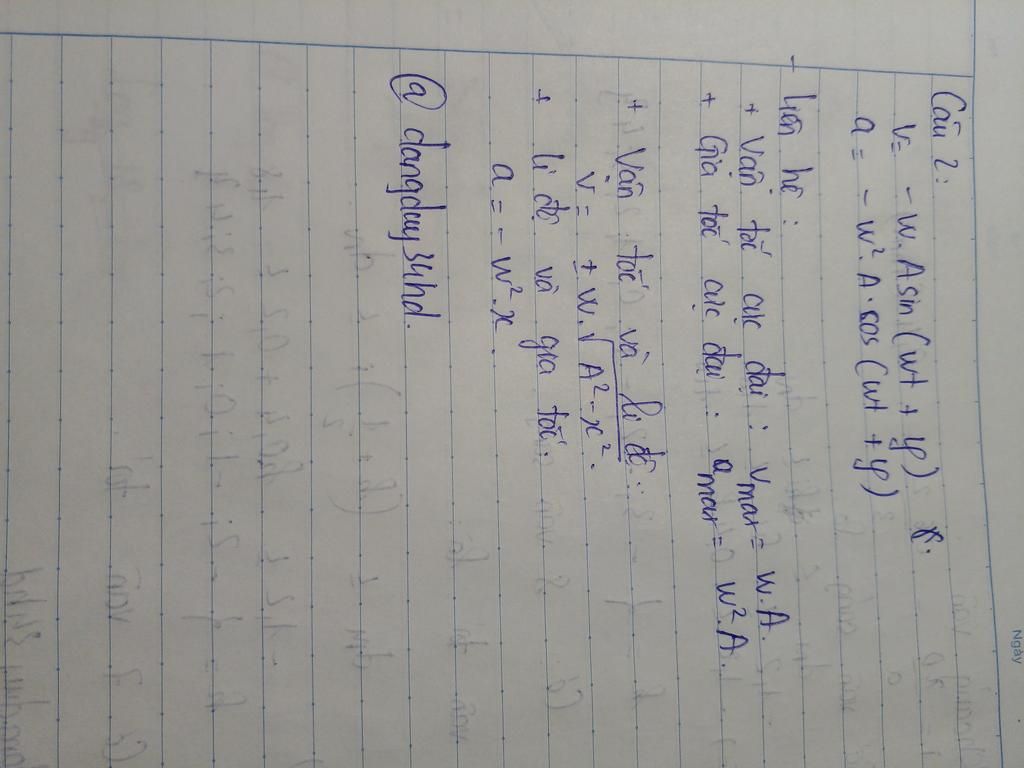 Ngày
Câu 2:
v = - w. A sin (wt + φ)
a = - w². A. cos (wt + φ)
- Liên hệ :
+ Vận tốc cực đại : vmax = w. A.
+ Gia tốc cực đại : amax = w². A.
+ Vận tốc và li độ :
v = ± w. √A² - x².
+ li độ và gia tốc.
a = - w². x.
@ dangduy34hd.